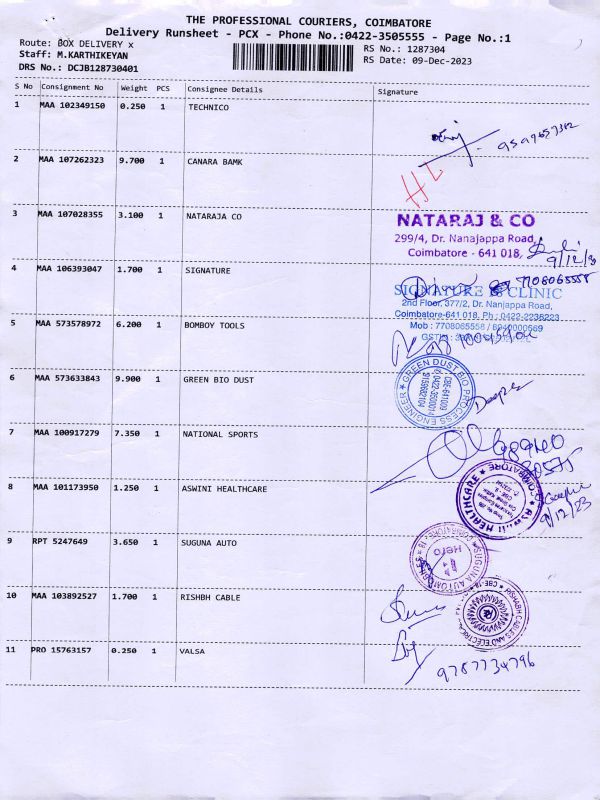 THE PROFESSIONAL COURIERS, COIMBATORE
Delivery Runsheet - PCX - Phone No.:0422-3505555 - Page No.:1
Route: BOX DELIVERY x
RS No.: 1287304
Staff: M.KARTHIKEYAN
RS Date: 09-Dec-2023
DRS No.: DCJB128730401
S No Consignment No Weight PCS Consignee Details Signature
1 MAA 102349150 0.250 1 TECHNICO
9597657312
2 MAA 107262323 9.700 1 CANARA BAMK
HL
3 MAA 107028355 3.100 1 NATARAJA CO
NATARAJ & CO
299/4, Dr. Nanajappa Road,
Coimbatore - 641 018,
9/12/23
4 MAA 106393047 1.700 1 SIGNATURE
7708065558
SIGNATURE CLINIC
2nd Floor, 377/2, Dr. Nanjappa Road,
Coimbatore-641 018. Ph: 0422-2236223
Mob : 7708065558 / 8940000569
5 MAA 573578972 6.200 1 BOMBOY TOOLS
6 MAA 573633843 9.900 1 GREEN BIO DUST
GREEN DUST BIO PROCESS ENGINEER
CBE-641009
Deepa
7 MAA 100917279 7.350 1 NATIONAL SPORTS
8 MAA 101173950 1.250 1 ASWINI HEALTHCARE
HEALTHCARE
COIMBATORE
9/12/23
9 RPT 5247649 3.650 1 SUGUNA AUTO
SUGUNA AUTOM
Hero
10 MAA 103892527 1.700 1 RISHBH CABLE
RISHABH CABLES AND ELECTRICAL
CBE-18
11 PRO 15763157 0.250 1 VALSA
9787734796